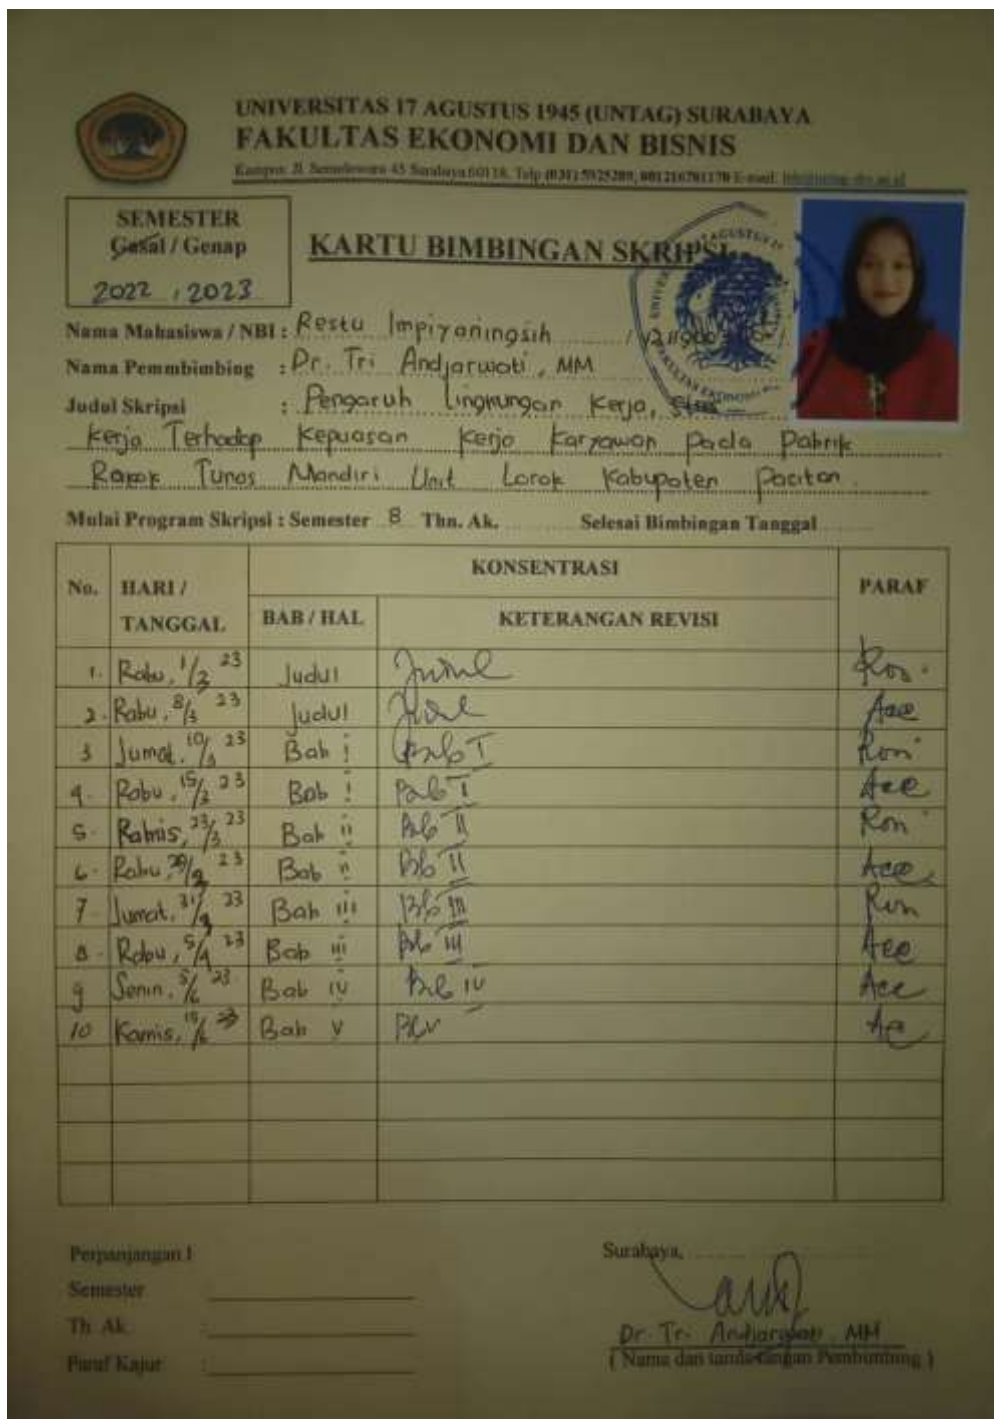 UNIVERSITAS 17 AGUSTUS 1945 (UNTAG) SURABAYA
FAKULTAS EKONOMI DAN BISNIS
Kampus: Jl. Semolowaru 45 Surabaya 60118, Telp (031) 5925289, E-mail:
SEMESTER
Gasal / Genap
2022 / 2023
KARTU BIMBINGAN SKRIPSI
Nama Mahasiswa / NBI : Restu Impiyaningsih /
Nama Pemmbimbing : Dr. Tri Andjarwati, MM
Judul Skripsi : Pengaruh Lingkungan Kerja,
Kerja Terhadap Kepuasan Kerja Karyawan Pada Pabrik
Rokok Tunas Mandiri Unit Lorok Kabupaten Pacitan.
Mulai Program Skripsi : Semester 8 Thn. Ak. Selesai Bimbingan Tanggal
No. HARI / TANGGAL KONSENTRASI PARAF
BAB / HAL KETERANGAN REVISI
1. Rabu, 1/3 23 Judul Judul
2. Rabu, 8/3 23 Judul Judul Acc
3 Jumat, 10/3 23 Bab I Bab I
4. Rabu, 15/3 23 Bab I Bab I Acc
5. Kamis, 23/3 23 Bab II Bab II
6. Rabu 29/3 23 Bab II Bab II Acc
7. Jumat, 31/3 23 Bab III Bab III
8. Rabu, 5/4 23 Bab III Bab III Acc
9 Senin, 5/6 23 Bab IV Bab IV Acc
10 Kamis, 15/6 23 Bab V Bab V Acc
Perpanjangan I
Semester
Th. Ak. :
Paraf Kajur :
Surabaya,
Dr. Tri Andjarwati, MM
( Nama dan tanda tangan Pembimbing )